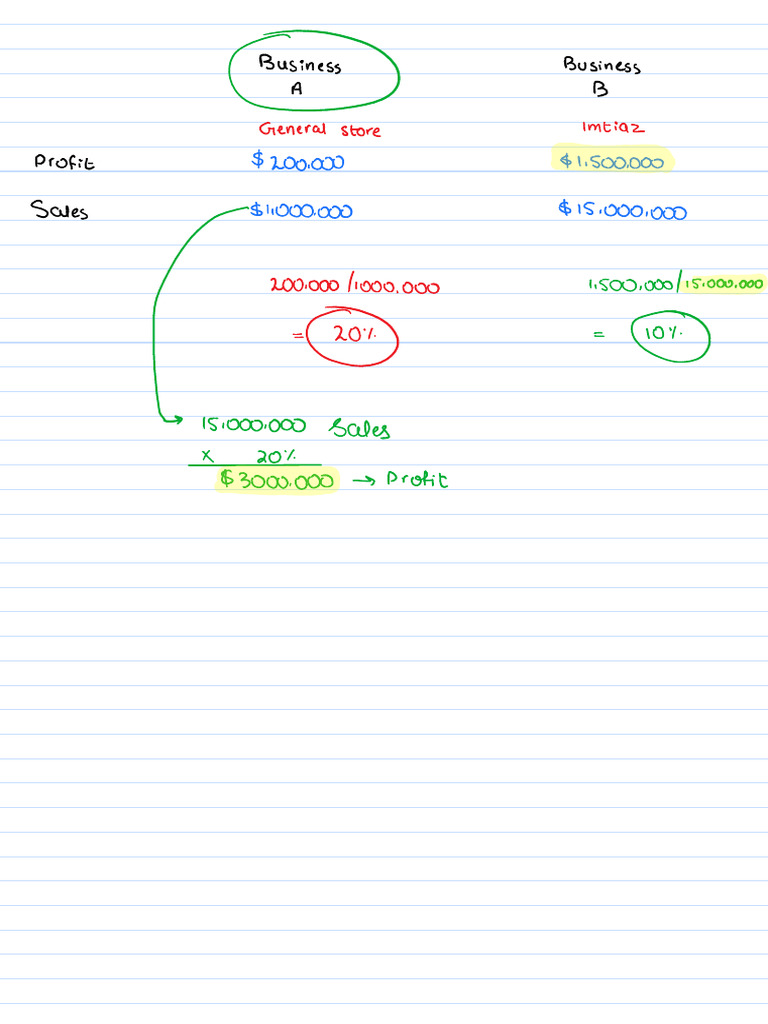 Business Business
A B
General store Imtiaz
Profit $200.000 $1.500.000
Sales $1.000.000 $15.000.000
200.000/1000.000 1.500.000/15.000.000
= 20% = 10%
15.000.000 Sales
x 20%
$3000.000 → Profit